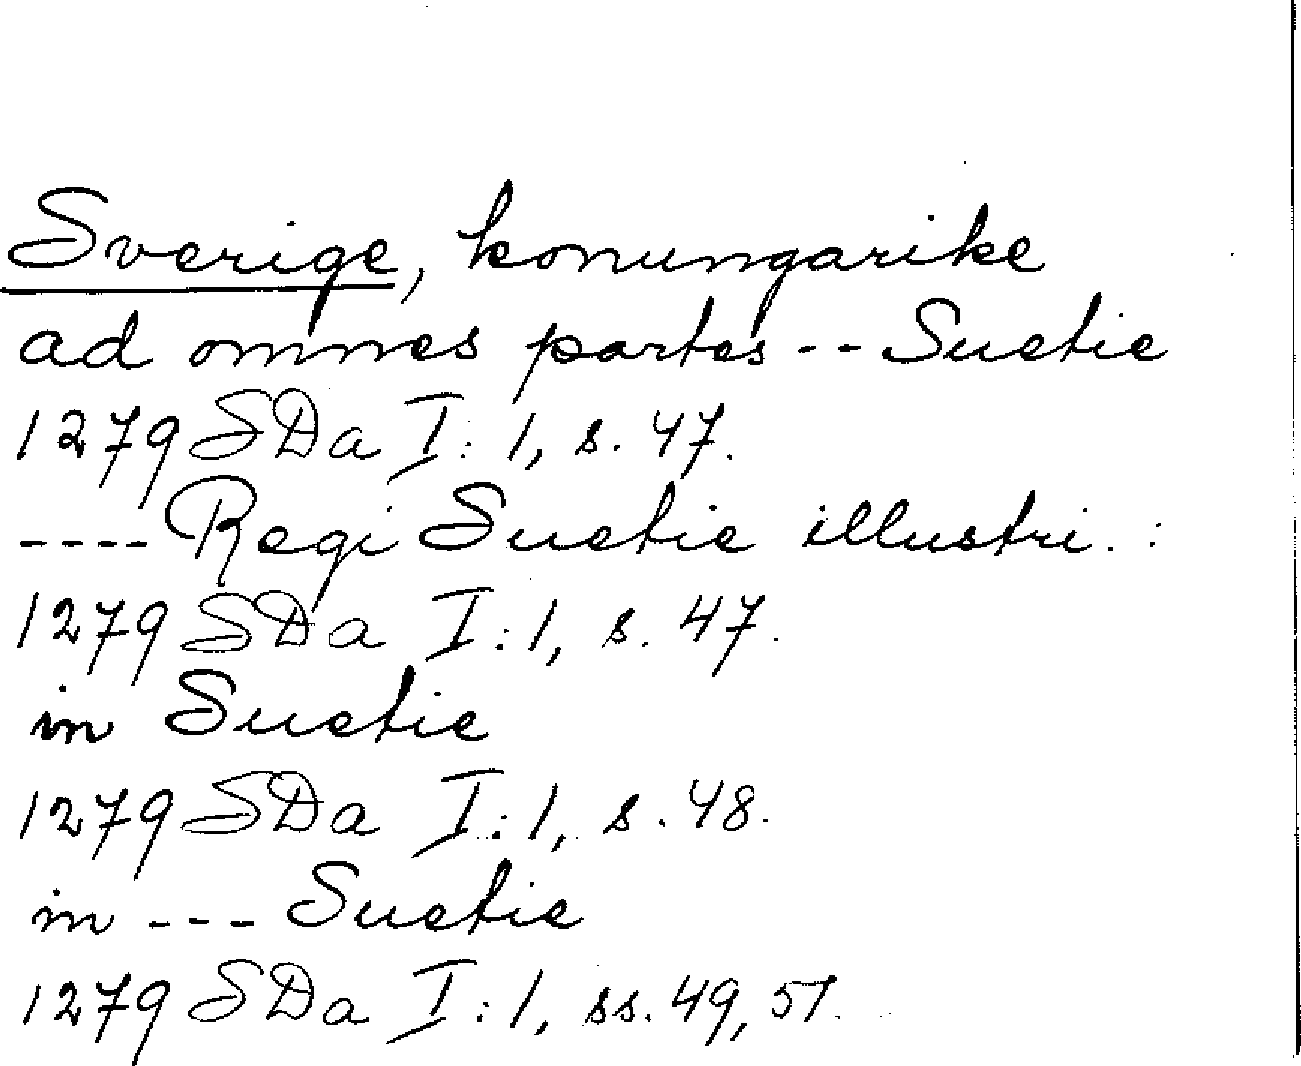 Sverige, konungarike
ad omnes partes -- Suetie
1279 SDa I:1, s. 47.
---- Regi Suetie illustri..:
1279 SDa I:1, s. 47.
in Suetie
1279 SDa I:1, s. 48.
in --- Suetie
1279 SDa I:1, ss. 49, 51.